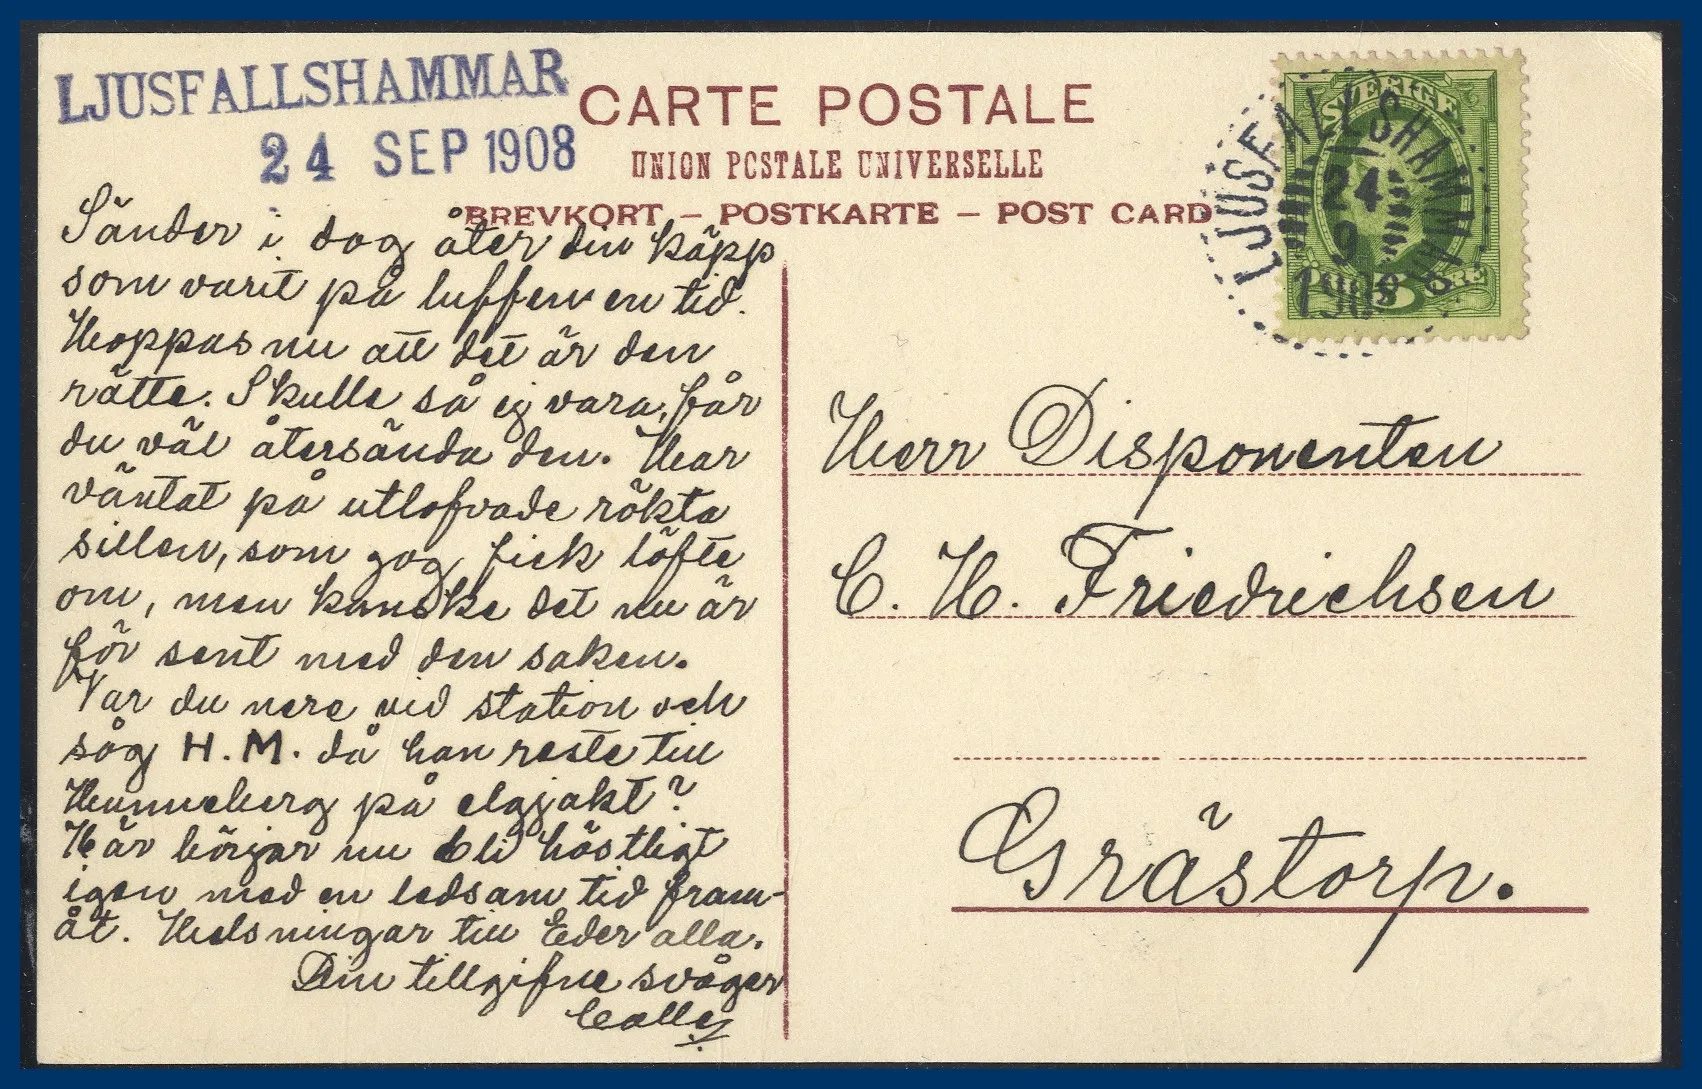 LJUSFALLSHAMMAR
24 SEP 1908
CARTE POSTALE
UNION POSTALE UNIVERSELLE
BREVKORT – POSTKARTE – POST CARD
SVERIGE
5 ÖRE
LJUSFALLSHAMMAR
24
9
1908
Sänder i dag åter din käpp
som varit på luffen en tid.
Hoppas nu att det är den
rätte. Skulle så ej vara, får
du väl återsända den. Har
väntat på utlofvade rökta
sillen, som jag fick löfte
om, men kanske det nu är
för sent med den saken.
Var du nere vid station och
såg H.M. då han reste till
Hunneberg på elgjakt?
Här börjar nu bli höstligt
igen med en ledsam tid fram-
åt. Helsningar till Eder alla.
Din tillgifne svåger
Calle
Herr Disponenten
C. H. Friedrichsen
Grästorp.